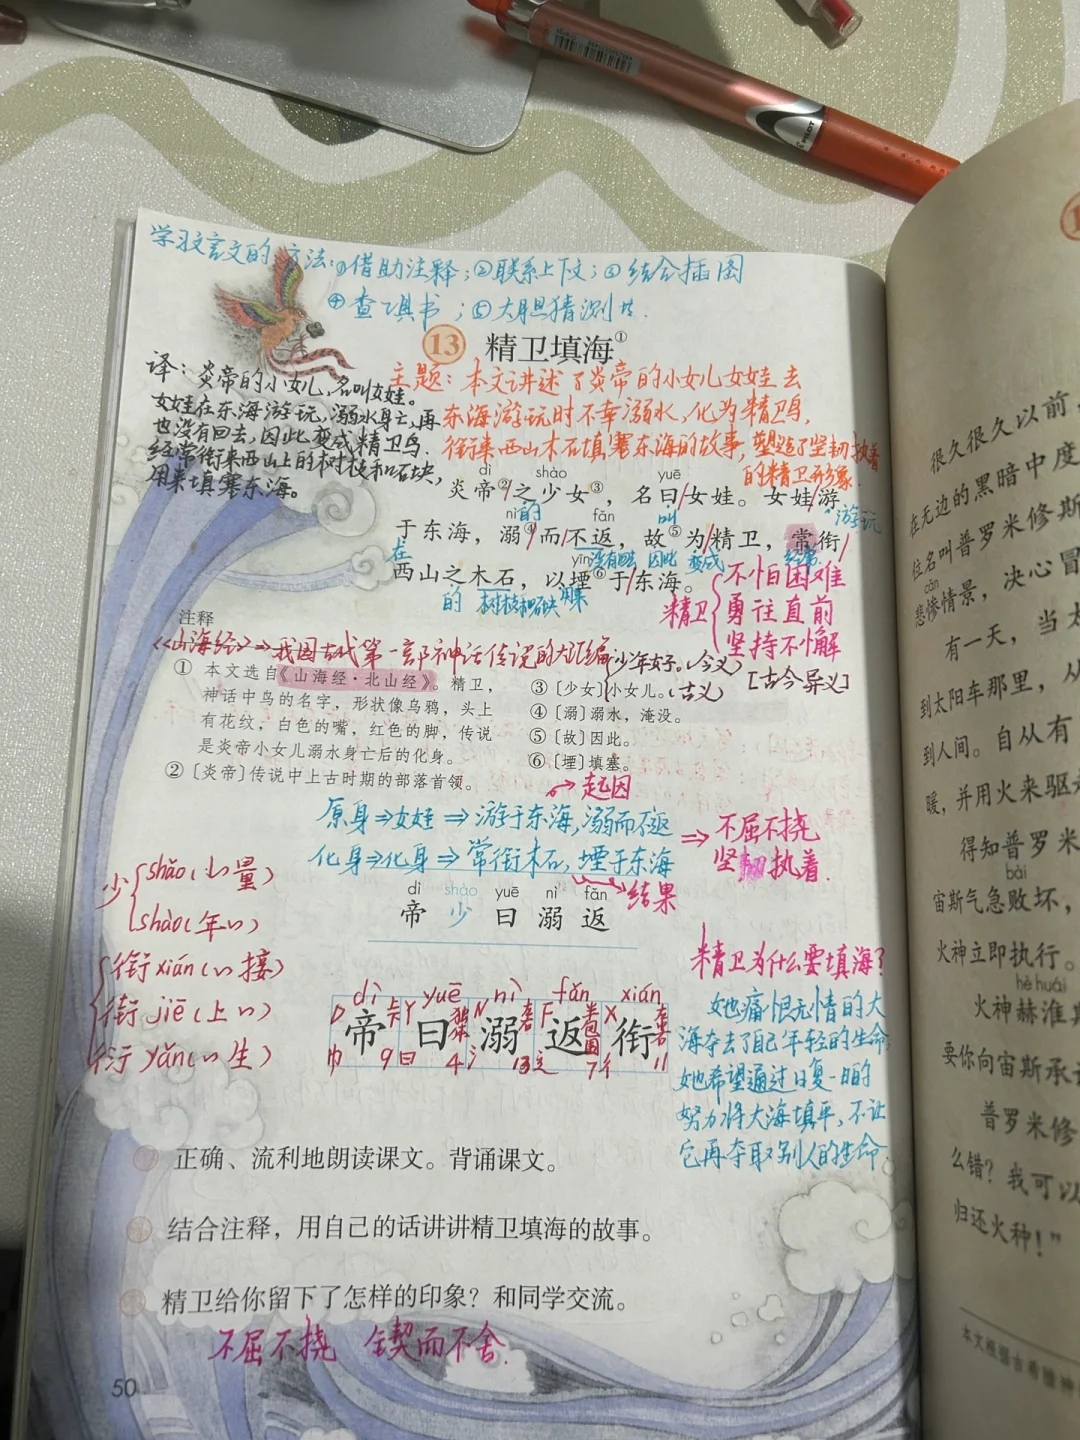 学习文言文的方法:①借助注释;②联系上下文;③结合插图
④查工具书;⑤大胆猜测等.
13 精卫填海①
译:炎帝的小女儿,名叫女娃。
女娃在东海游玩,溺水身亡,再
也没有回去,因此变成精卫鸟.
经常衔来西山上的树枝和石块,
用来填塞东海。
主题:本文讲述了炎帝的小女儿女娃去
东海游玩时不幸溺水,化为精卫鸟,
衔来西山木石填塞东海的故事,塑造了坚韧执着
的精卫形象.
dì shào yuē
炎帝②/之少女③,名曰/女娃。女娃/游
的 叫 游玩
nì fǎn
于东海,溺④/而/不返,故⑤为/精卫,常衔/
在 没有回去 因此 变成 经常
yīn
西山之木石,以堙⑥于/东海。
的 树枝和石块 用来
精卫
不怕困难
勇往直前
坚持不懈
注释
《山海经》⇒我国古代第一部神话传说的大汇编
① 本文选自《山海经·北山经》。精卫,
神话中鸟的名字,形状像乌鸦,头上
有花纹,白色的嘴,红色的脚,传说
是炎帝小女儿溺水身亡后的化身。
② 〔炎帝〕传说中上古时期的部落首领。
少年女子。(今义)
③〔少女〕小女儿。(古义) [古今异义]
④〔溺〕溺水,淹没。
⑤〔故〕因此。
⑥〔堙〕填塞。
→起因
原身⇒女娃⇒游于东海,溺而不返
化身⇒化身⇒常衔木石,堙于东海
→结果
⇒不屈不挠
坚韧执着.
dì shào yuē nì fǎn
帝 少 曰 溺 返
少
shǎo(少量)
shào(年〃)
衔 xián(〃接)
街 jiē(上〃)
衍 yǎn(〃生)
dì yuē nì fǎn xián
D Y N F X
帝 曰 溺 返 衔
巾 9 曰 4 氵 13 辶 7 彳 11
精卫为什么要填海?
她痛恨无情的大
海夺去了自己年轻的生命,
她希望通过日复一日的
努力将大海填平,不让
它再夺取别人的生命.
正确、流利地朗读课文。背诵课文。
结合注释,用自己的话讲讲精卫填海的故事。
精卫给你留下了怎样的印象?和同学交流。
不屈不挠 锲而不舍.
50
很久很久以前,
在无边的黑暗中度
位名叫普罗米修斯
cǎn
悲惨情景,决心冒
有一天,当太
到太阳车那里,从
到人间。自从有
暖,并用火来驱
得知普罗米
bài
宙斯气急败坏,
火神立即执行。
hè huái
火神赫淮斯
要你向宙斯承
普罗米修
么错?我可以
归还火种!”
本文根据古希腊神
PILOT